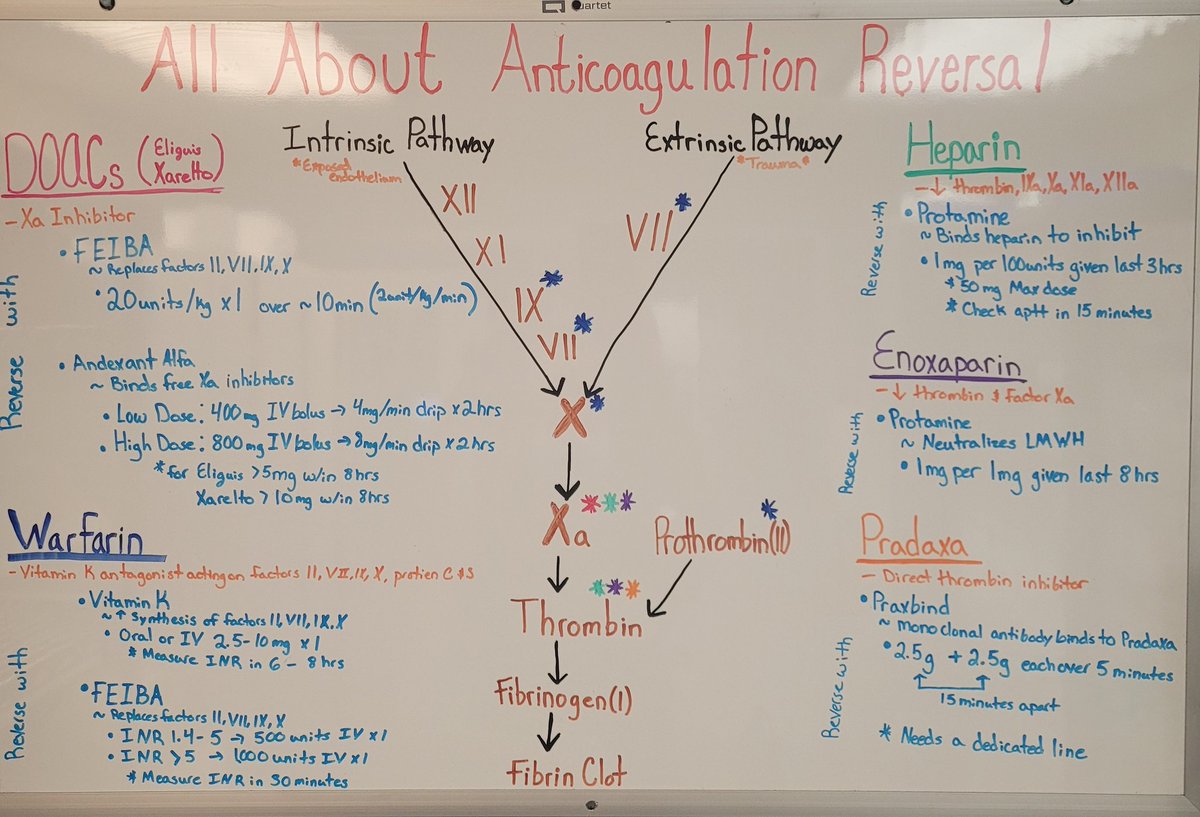 All About Anticoagulation Reversal
DOACs (Eliquis
Xarelto)
- Xa Inhibitor
Reverse with
• FEIBA
~ Replaces factors II, VII, IX, X
• 20units/kg x1 over ~10min (2unit/kg/min)
• Andexant Alfa
~ Binds free Xa inhibitors
• Low Dose: 400mg IV bolus → 4mg/min drip x2hrs
• High Dose: 800mg IV bolus → 8mg/min drip x2hrs
* for Eliquis >5mg w/in 8hrs
Xarelto >10mg w/in 8hrs
Warfarin
- Vitamin K antagonist acting on factors II, VII, IX, X, protien C & S
Reverse with
• Vitamin K
~ ↑ Synthesis of factors II, VII, IX, X
• Oral or IV 2.5-10mg x1
* Measure INR in 6 - 8hrs
• FEIBA
~ Replaces factors II, VII, IX, X
• INR 1.4-5 → 500 units IV x1
• INR >5 → 1000 units IV x1
* Measure INR in 30 minutes
Intrinsic Pathway
*Exposed
endothelium
XII
XI
IX*
VII*
Extrinsic Pathway
*Trauma*
VII*
X*
Xa***
Prothrombin(II)*
***
Thrombin
Fibrinogen(I)
Fibrin Clot
Heparin
- ↓ thrombin, IXa, Xa, XIa, XIIa
Reverse with
• Protamine
~ Binds heparin to inhibit
• 1mg per 100units given last 3hrs
* 50mg Max dose
* Check aptt in 15 minutes
Enoxaparin
- ↓ thrombin & Factor Xa
Reverse with
• Protamine
~ Neutralizes LMWH
• 1mg per 1mg given last 8hrs
Pradaxa
- Direct thrombin inhibitor
Reverse with
• Praxbind
~ monoclonal antibody binds to Pradaxa
• 2.5g + 2.5g each over 5 minutes
15 minutes apart
* Needs a dedicated line